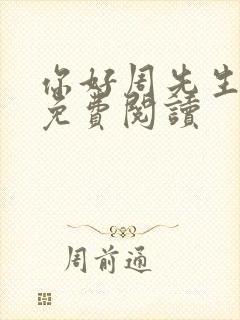 你好周先生
免費閱讀
周前通